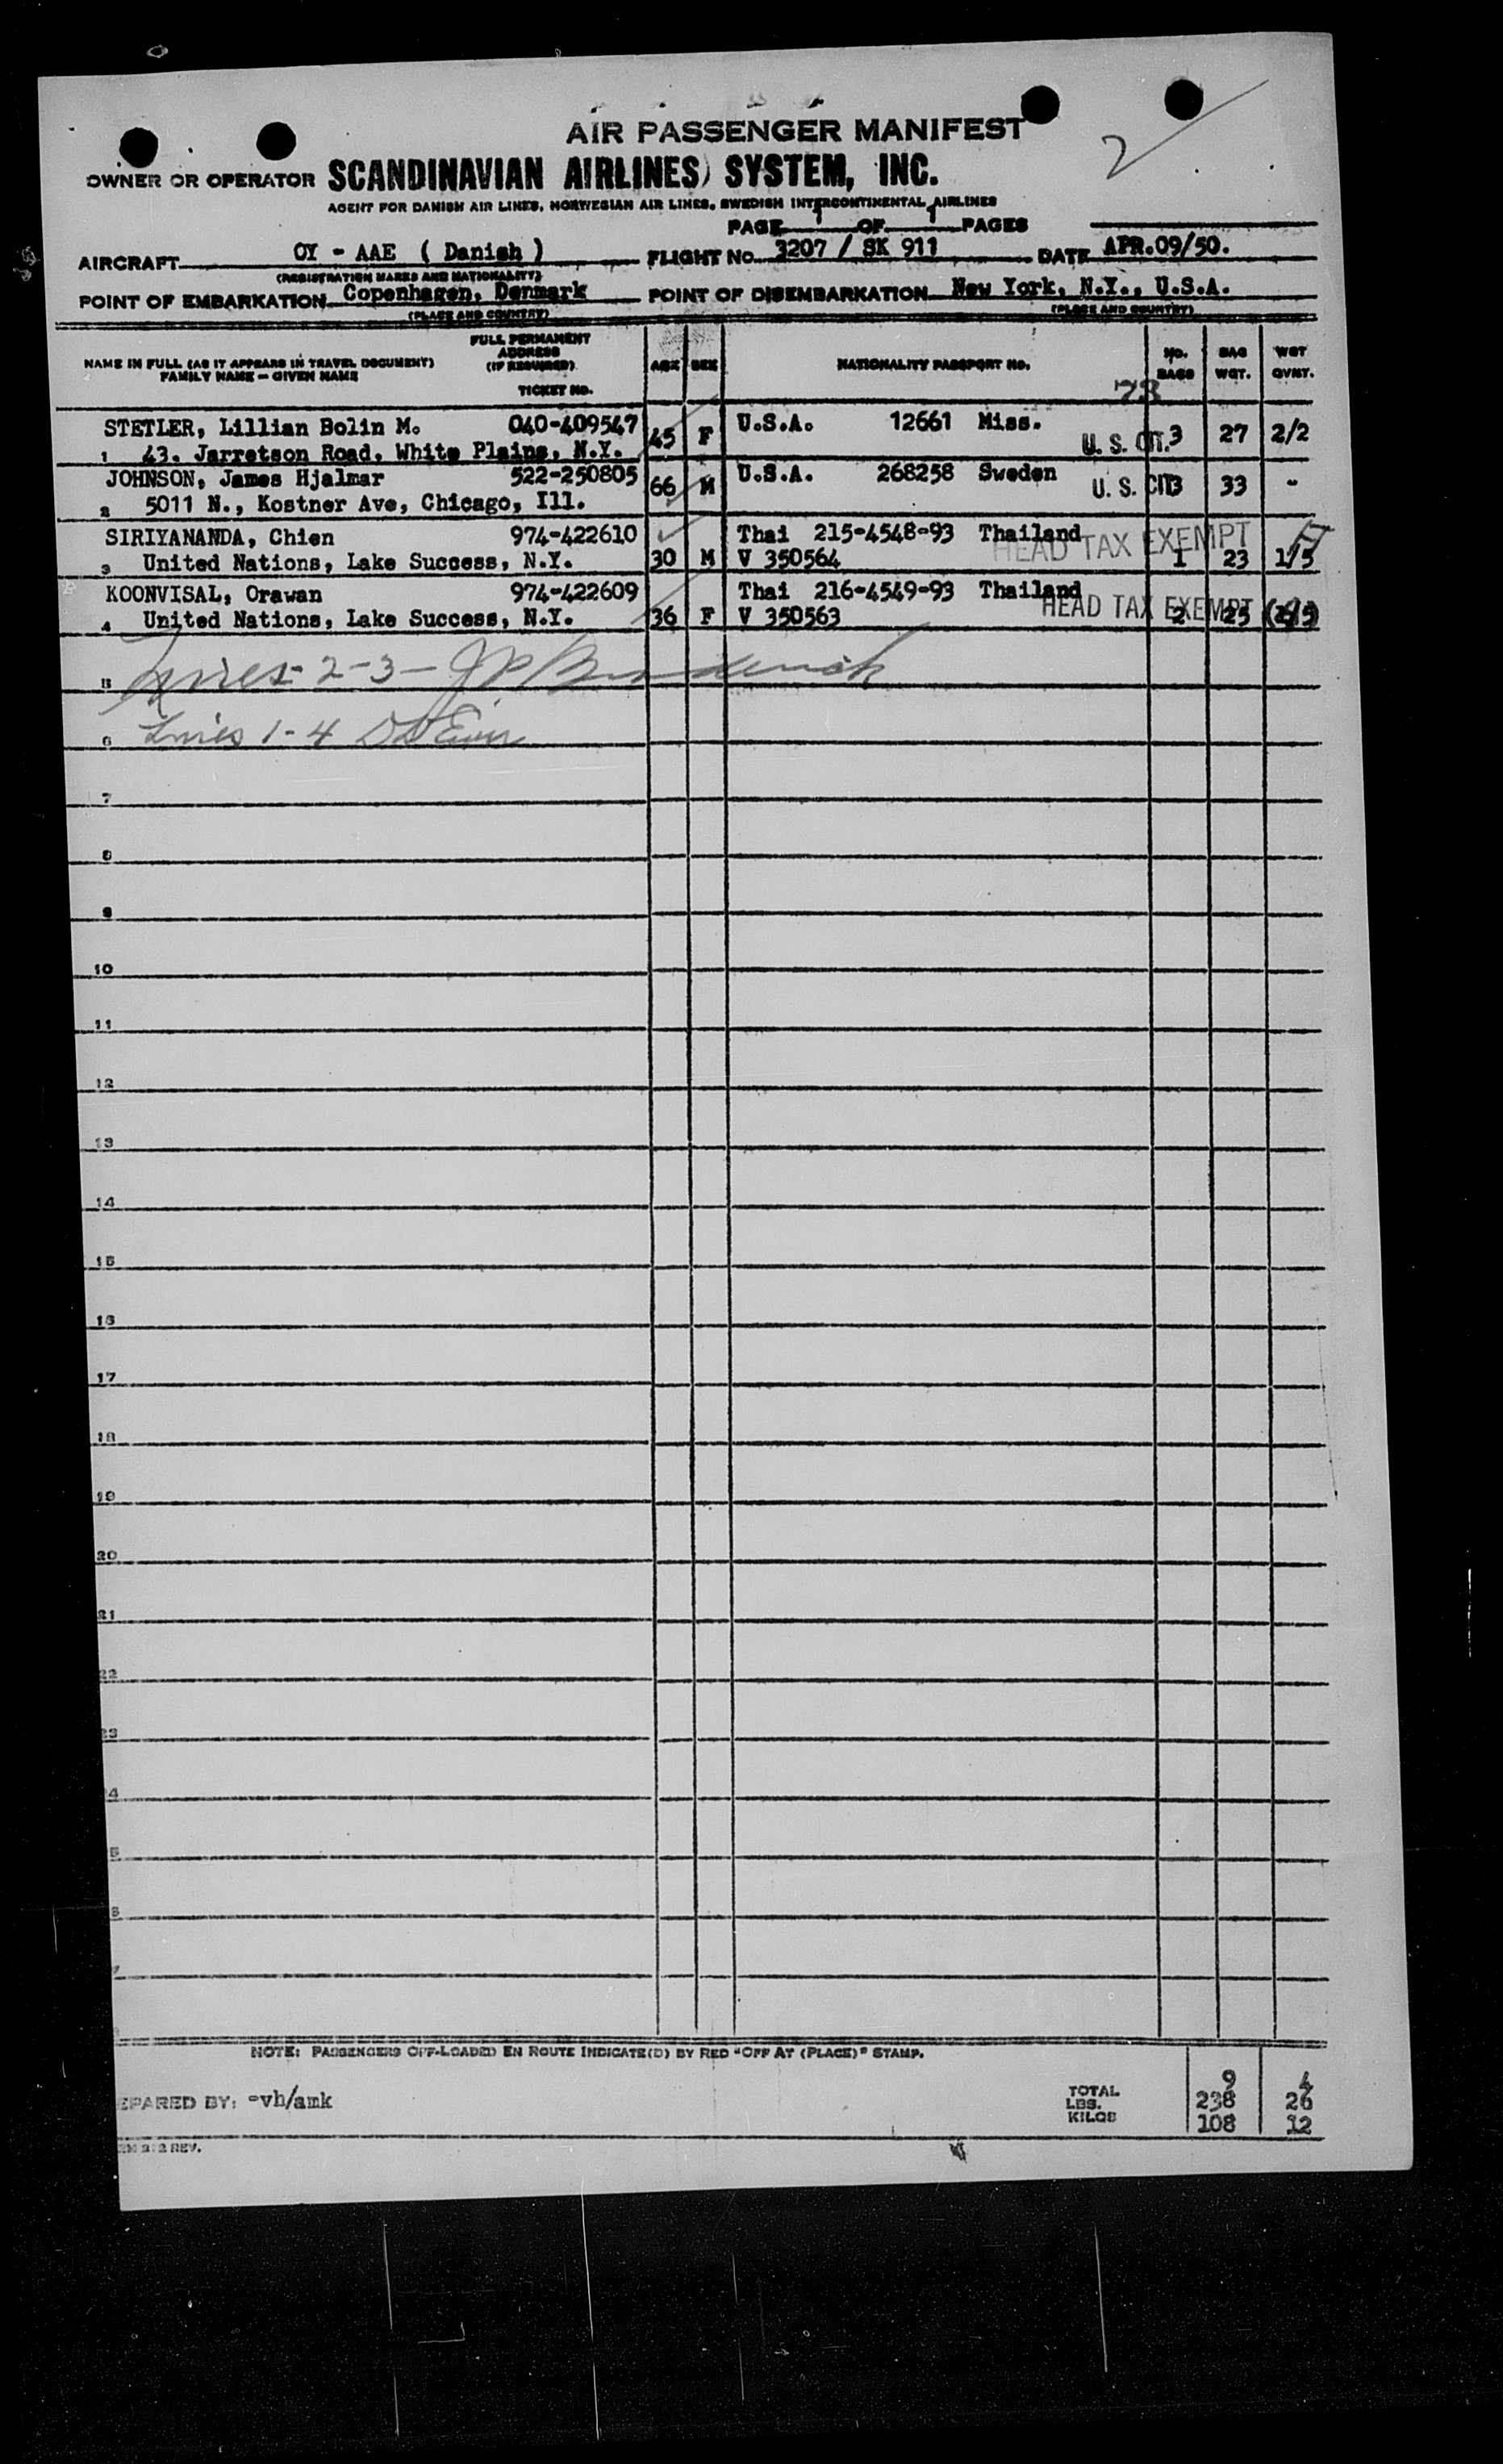 2
AIR PASSENGER MANIFEST
OWNER OR OPERATOR SCANDINAVIAN AIRLINES SYSTEM, INC.
AGENT FOR DANISH AIR LINES, NORWEGIAN AIR LINES, SWEDISH INTERCONTINENTAL AIRLINES
PAGE 1 OF 1 PAGES
AIRCRAFT OY - AAE ( Danish ) FLIGHT NO. 3207 / SK 911 DATE APR.09/50.
(REGISTRATION MARKS AND NATIONALITY)
POINT OF EMBARKATION Copenhagen, Denmark POINT OF DISEMBARKATION New York, N.Y., U.S.A.
(PLACE AND COUNTRY) (PLACE AND COUNTRY)
NAME IN FULL (AS IT APPEARS IN TRAVEL DOCUMENT)
FAMILY NAME — GIVEN NAME
FULL PERMANENT
ADDRESS
(IF REQUIRED)
TICKET NO.
AGE SEX NATIONALITY PASSPORT NO.
NO.
BAGS
BAG
WGT.
WGT
OVNT.
73
STETLER, Lillian Bolin M. 040-409547 45 F U.S.A. 12661 Miss. U. S. CIT. 3 27 2/2
1 43. Jarretson Road, White Plains, N.Y.
JOHNSON, James Hjalmar 522-250805 66 M U.S.A. 268258 Sweden U. S. CIT 3 33 -
2 5011 N., Kostner Ave, Chicago, Ill.
SIRIYANANDA, Chien 974-422610 Thai 215-4548-93 Thailand HEAD TAX EXEMPT
3 United Nations, Lake Success, N.Y. 30 M V 350564 1 23 1/5
KOONVISAL, Orawan 974-422609 Thai 216-4549-93 Thailand HEAD TAX EXEMPT
4 United Nations, Lake Success, N.Y. 36 F V 350563 2 25
5 Lines 2-3- J P Broderick
6 Lines 1-4
7
8
9
10
11
12
13
14
15
16
17
18
19
20
21
22
23
4
5
6
7
NOTE: PASSENGERS OFF-LOADED EN ROUTE INDICATE(D) BY RED "OFF AT (PLACE)" STAMP.
EPARED BY: -vh/amk
TOTAL 9 4
LBS. 238 26
KILOS 108 12
REV.